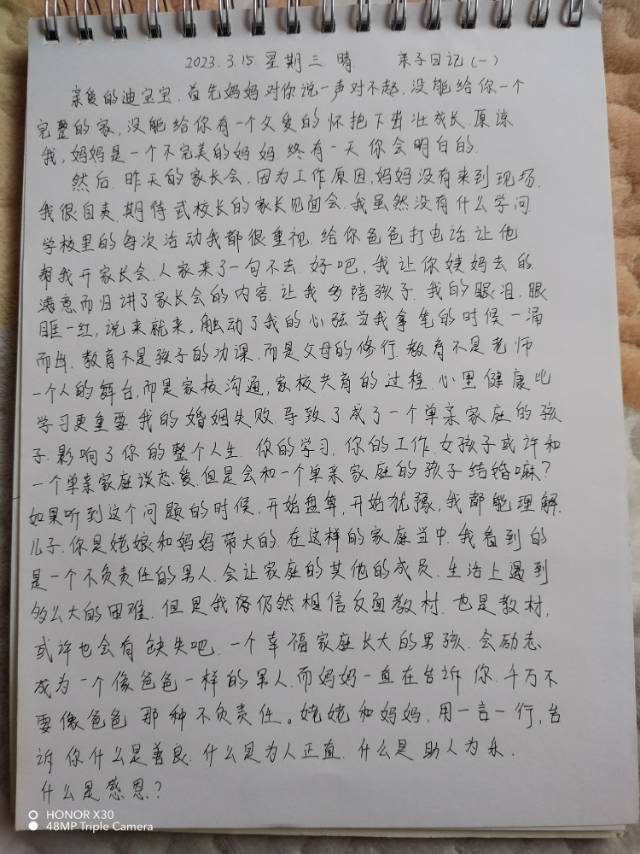 2023.3.15.星期三 晴 亲子日记(一)
亲爱的迪宝宝,首先妈妈对你说一声对不起,没能给你一个
完整的家,没能给你有一个父爱的怀抱下茁壮成长.原谅
我,妈妈是一个不完美的妈妈.终有一天你会明白的.
然后.昨天的家长会,因为工作原因,妈妈没有来到现场.
我很自责.期待武校长的家长见面会.我虽然没有什么学问.
学校里的每次活动我都很重视.给你爸爸打电话.让他
帮我开家长会.人家来了一句不去.好吧,我让你姨妈去的.
满意而归讲了家长会的内容.让我多陪孩子.我的眼泪,眼
眶一红,说来就来.触动了我的心弦当我拿笔的时候一涌
而出.教育不是孩子的功课.而是父母的修行.教育不是老师
一个人的舞台,而是家校沟通,家校共育的过程.心里健康比
学习更重要.我的婚姻失败.导致了成了一个单亲家庭的孩
子.影响了你的整个人生.你的学习,你的工作.女孩子或许和
一个单亲家庭谈恋爱,但是会和一个单亲家庭的孩子结婚嘛?
如果听到这个问题的时候.开始盘算,开始犹豫,我都能理解.
儿子.你是姥娘和妈妈带大的.在这样的家庭当中.我看到的
是一个不负责任的男人.会让家庭的其他的成员.生活上遇到
多么大的困难.但是我仍然相信反面教材.也是教材,
或许也会有缺失吧.一个幸福家庭长大的男孩.会励志
成为一个像爸爸一样的男人.而妈妈一直在告诉你.千万不
要像爸爸那种不负责任。姥姥和妈妈.用一言一行,告
诉你什么是善良.什么是为人正直.什么是助人为乐.
什么是感恩?
HONOR X30
48MP Triple Camera